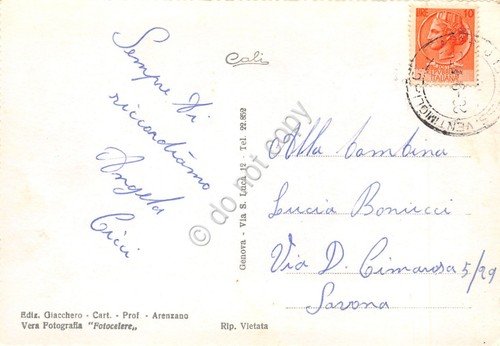 Sempre Vi
ricordiamo
Angela
Cicci
Cali
LIRE 10
Alla Bambina
Lucia Bonucci
Via D. Cimarosa 5/29
Savona
Genova - Via S. Luca 12 - Tel. 22.852
do not copy
Ediz. Giacchero - Cart. - Prof - Arenzano
Vera Fotografia "Fotocelere„
Rip. Vietata